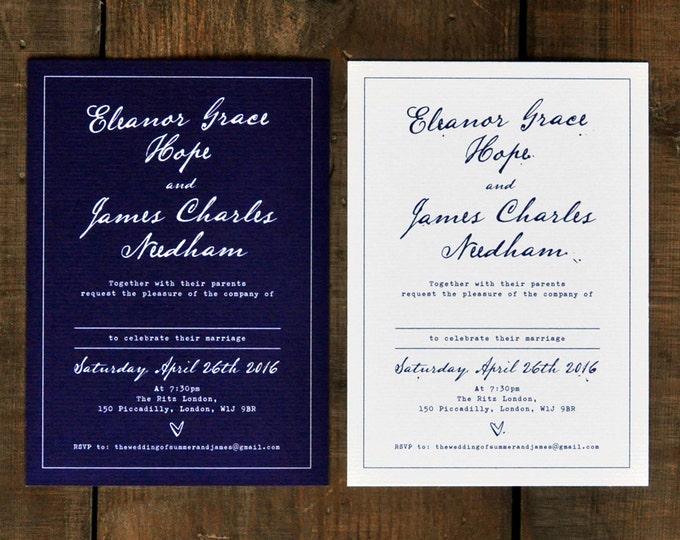 Eleanor Grace
Hope
and
James Charles
Needham
Together with their parents
request the pleasure of the company of
to celebrate their marriage
Saturday April 26th 2016
At 7:30pm
The Ritz London,
150 Piccadilly, London, W1J 9BR
RSVP to: theweddingofsummerandjames@gmail.com
Eleanor Grace
Hope
and
James Charles
Needham
Together with their parents
request the pleasure of the company of
to celebrate their marriage
Saturday April 26th 2016
At 7:30pm
The Ritz London,
150 Piccadilly, London, W1J 9BR
RSVP to: theweddingofsummerandjames@gmail.com